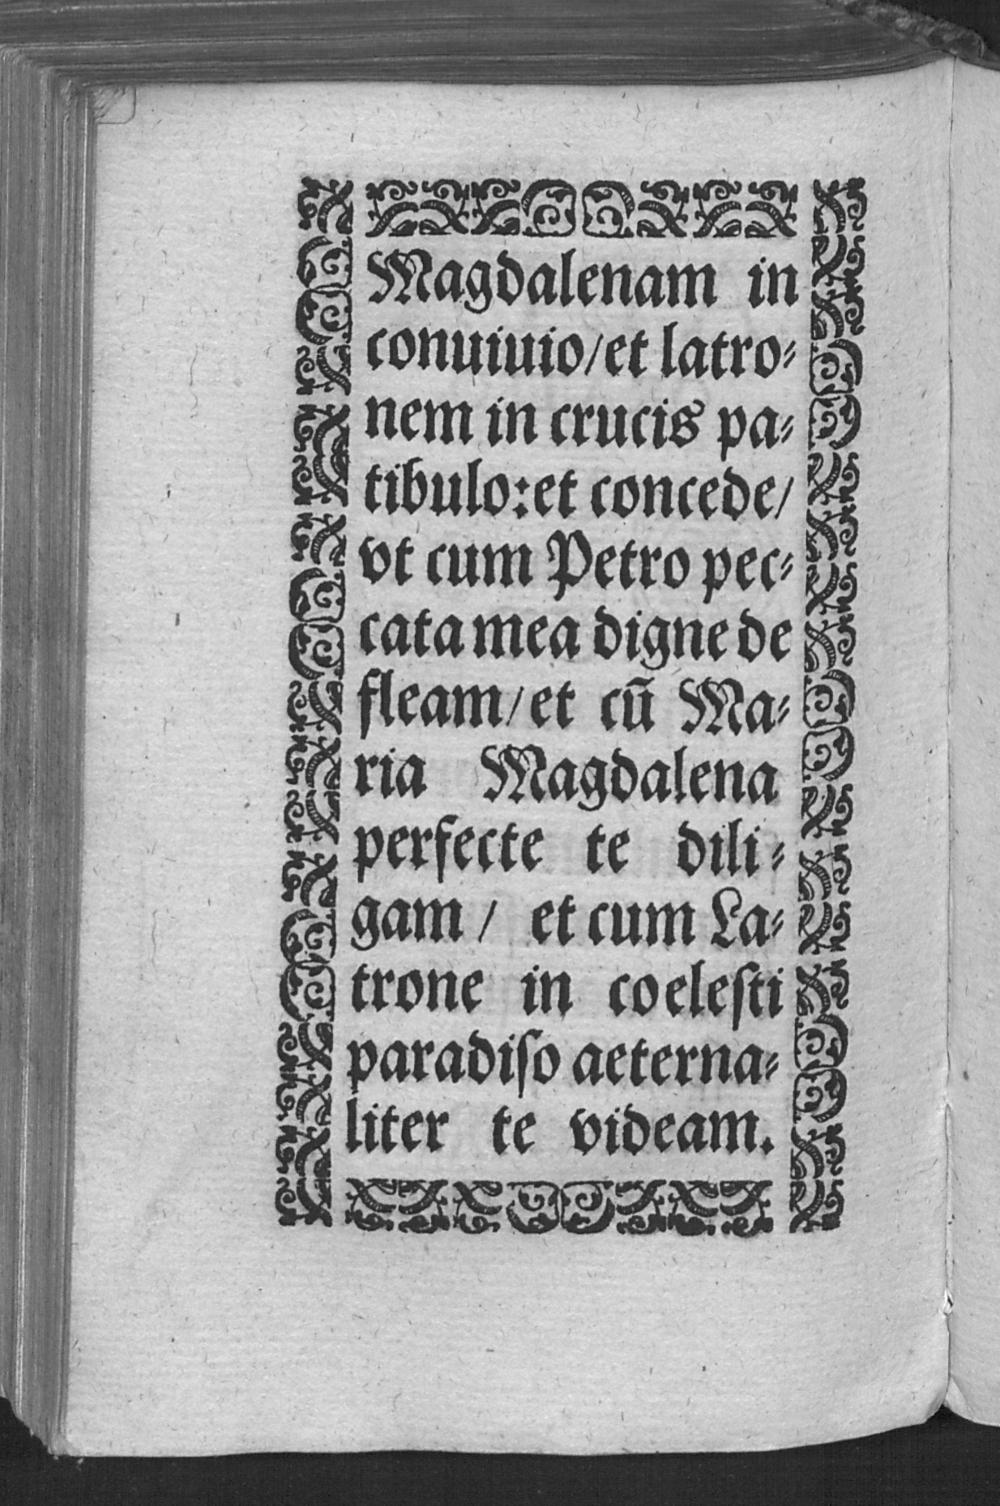 Magdalenam in
conuiuio/et latro⸗
nem in crucis pa⸗
tibulo:et concede/
vt cum Petro pec⸗
cata mea digne de
fleam/et cū Ma⸗
ria Magdalena
perfecte te dili⸗
gam / et cum La⸗
trone in coelesti
paradiſo aeterna⸗
liter te videam.